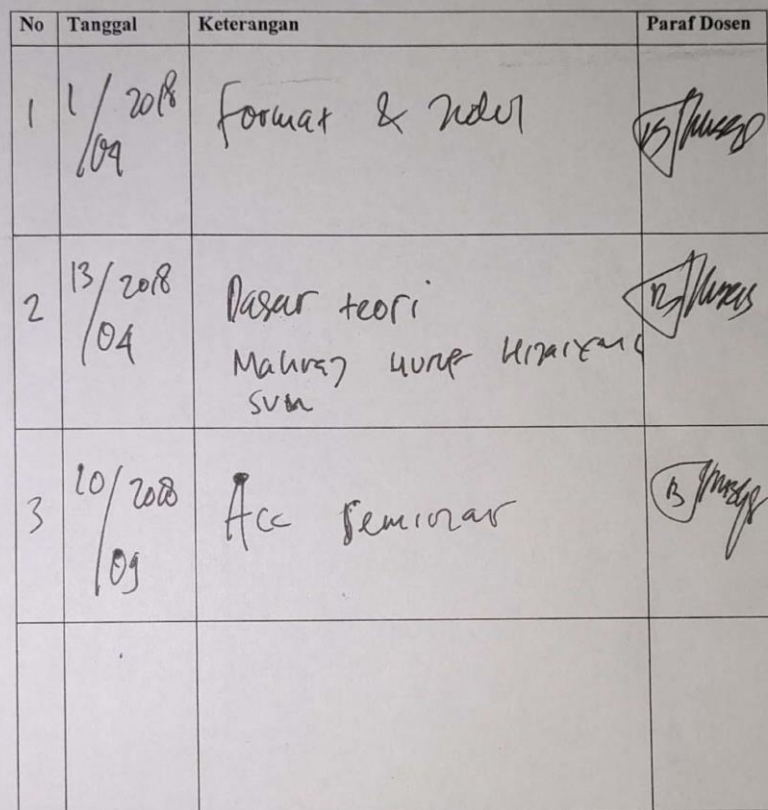 No Tanggal Keterangan Paraf Dosen
1 1/09 2018 Format &
2 13/04 2018 Dasar teori
Mahraj huruf Hijaiyah
SVM
3 20/09 2018 Acc seminar